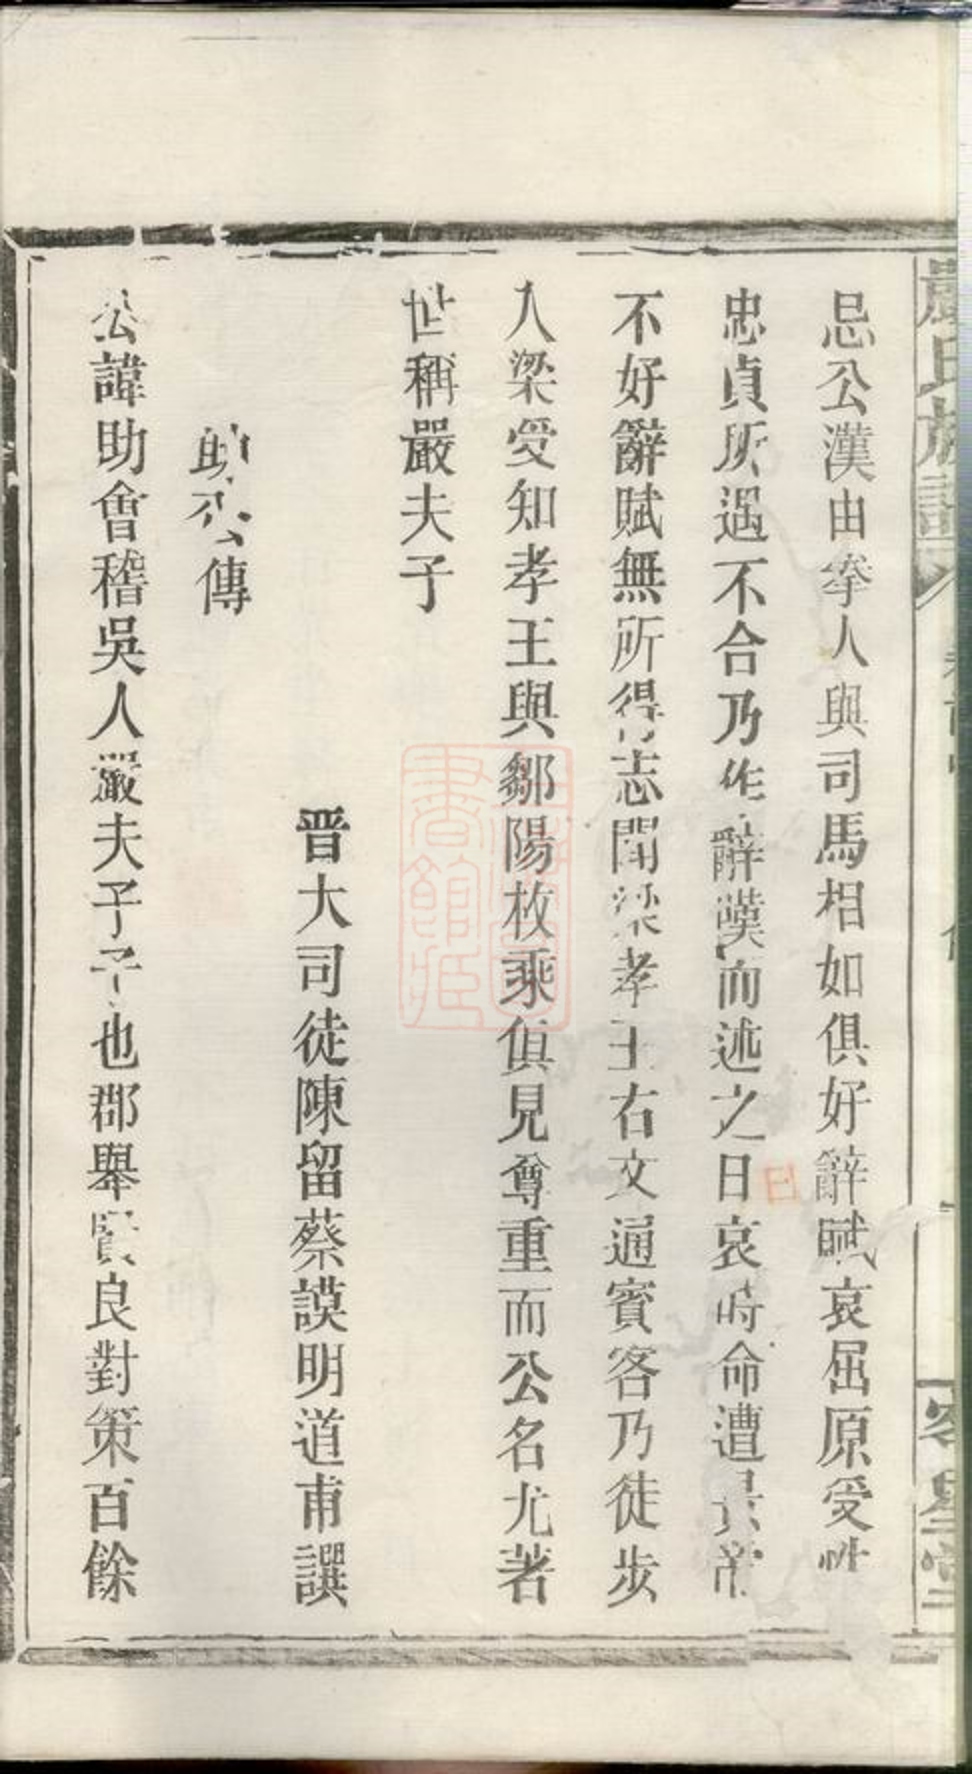 嚴氏族譜
客星堂
忌公漢由拳人與司馬相如俱好辭賦哀屈原受性
忠貞所遇不合乃作辭嘆而述之曰哀時命遭景帝
不好辭賦無所得志聞梁孝王右文通賓客乃徒步
入梁受知孝王與鄒陽枚乘俱見尊重而公名尤著
世稱嚴夫子
晋大司徒陳留蔡謨明道甫譔
助公傳
公諱助會稽吳人嚴夫子子也郡舉賢良對策百餘